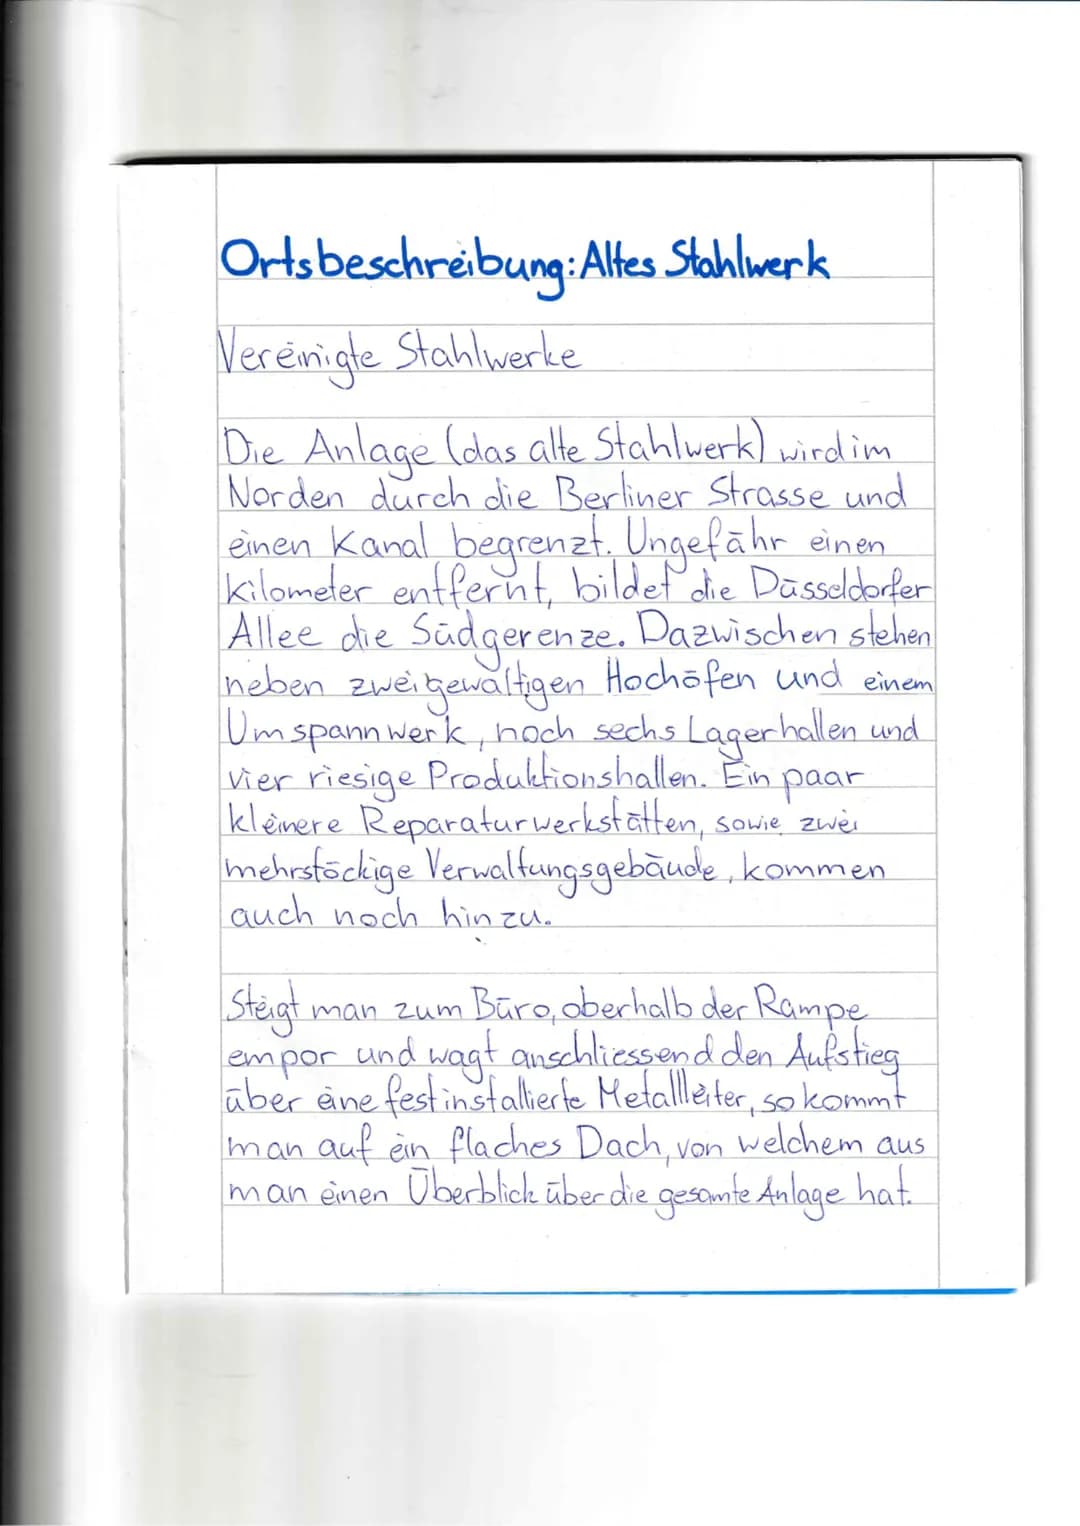 Ortsbeschreibung: Altes Stahlwerk
Vereinigte Stahlwerke
Die Anlage (das alte Stahlwerk) wird im
Norden durch die Berliner Strasse und
einen Kanal begrenzt. Ungefähr einen
Kilometer entfernt, bildet die Düsseldorfer
Allee die Südgerenze. Dazwischen stehen
neben zwei gewaltigen Hochöfen und einem
Umspannwerk, noch sechs Lagerhallen und
vier riesige Produktionshallen. Ein paar
kleinere Reparaturwerkstätten, sowie zwei
mehrstöckige Verwaltungsgebäude, kommen
auch noch hinzu.
Steigt man zum Büro, oberhalb der Rampe
empor und wagt anschliessend den Aufstieg
über eine festinstallierte Metallleiter, so kommt
man auf ein flaches Dach, von welchem aus
man einen Überblick über die gesamte Anlage hat.